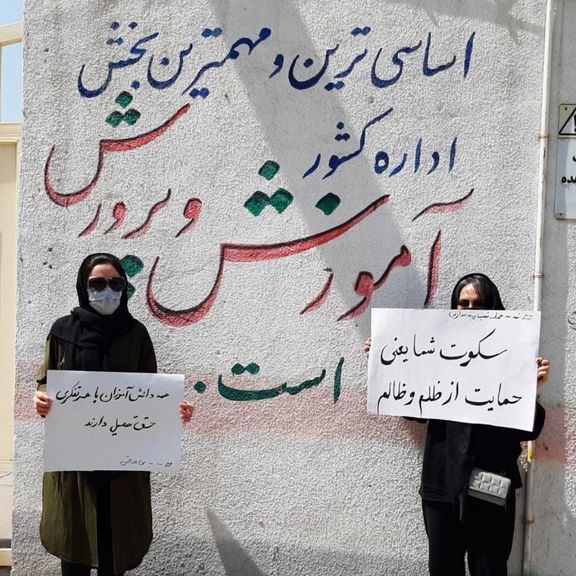 اساسی ترین و مهمترین بخش
اداره کشور
آموزش و پرورش
است.
همه دانش آموزان با هر تفکری
حق تحصیل دارند
نه به
سکوت شما یعنی
حمایت از ظلم و ظالم